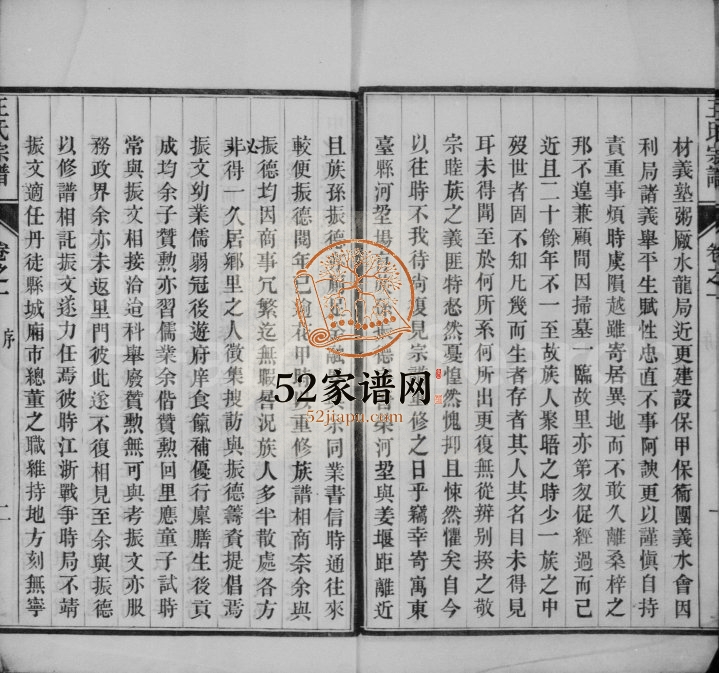 王氏宗譜
卷之一
序
一
材義塾粥厰水龍局近更建設保甲保衞團義水會因
利局諸義舉平生賦性忠直不事阿諛更以謹愼自持
責重事煩時虞隕越雖寄居異地而不敢久離桑梓之
邦不遑兼顧間因掃墓一臨故里亦第匆促經過而已
近且二十餘年不一至故族人聚晤之時少一族之中
歿世者固不知凡幾而生者存者其人其名目未得見
耳未得聞至於何所系何所出更復無從辨别揆之敬
宗睦族之義匪特惄然憂惶然愧抑且悚然懼矣自今
以往時不我待尚復見宗譜
修之日乎竊幸寄寓東
臺縣河垈場
族孫振德
業河垈與姜堰距離近
且族孫振德
同業書信時通往來
較便振德閱年已
花甲時
重修族譜相商奈余與
振德均因商事冗繁迄無暇晷況族人多半散處各方
非得一久居鄉里之人徵集搜訪與振德籌資提倡焉
必
振文幼業儒弱冠後遊府庠食餼補優行廩膳生後貢
成均余子贊勲亦習儒業余偕贊勲回里應童子試時
常與振文相接洽迨科舉廢贊勲無可與考振文亦服
務政界余亦未返里門彼此遂不復相見至余與振德
以修譜相託振文遂力任焉彼時江浙戰爭時局不靖
振文適任丹徒縣城廂市總董之職維持地方刻無寧
王氏宗譜
卷之一
序
二
52家谱网
52jiapu.com